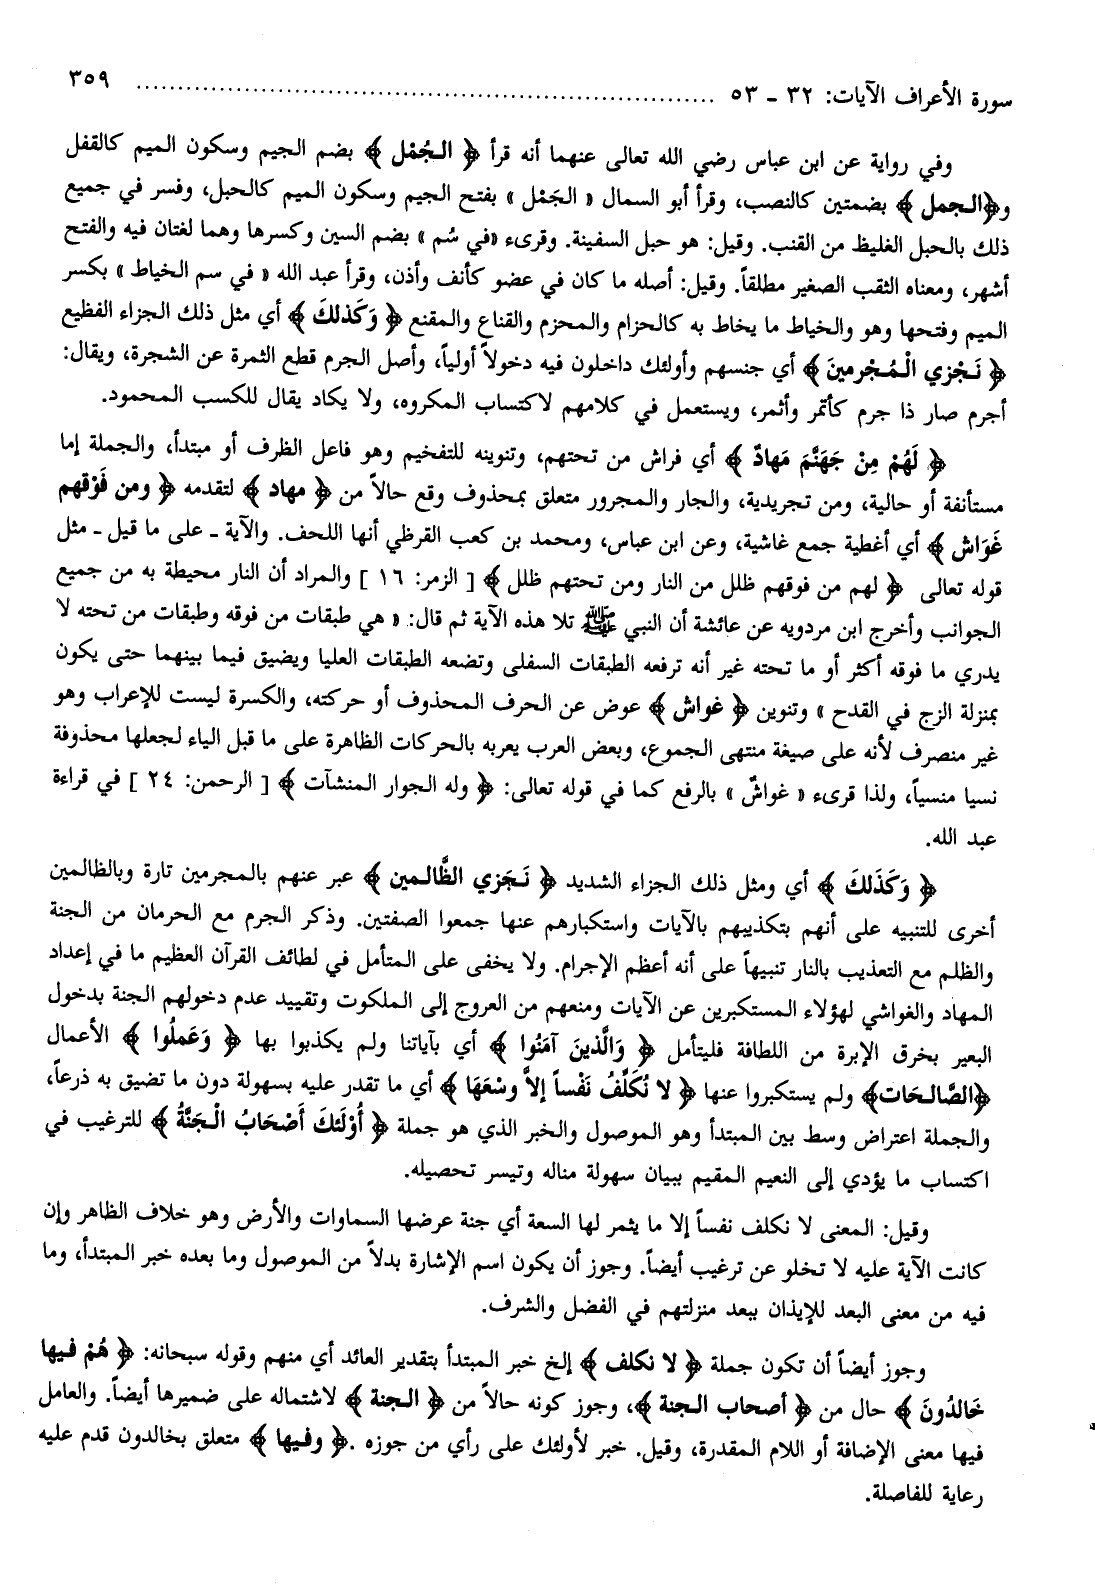 سورة الأعراف الآيات: ٣٢ ـ ٥٣ ........................................................................ ٣٥٩
وفي رواية عن ابن عباس رضي الله تعالى عنهما أنه قرأ ﴿ الـجُمْل ﴾ بضم الجيم وسكون الميم كالقفل
و﴿الـجمل ﴾ بضمتين كالنصب، وقرأ أبو السمال « الجَمْل » بفتح الجيم وسكون الميم كالحبل، وفسر في جميع
ذلك بالحبل الغليظ من القنب. وقيل: هو حبل السفينة. وقرىء «في سُم » بضم السين وكسرها وهما لغتان فيه والفتح
أشهر، ومعناه الثقب الصغير مطلقاً. وقيل: أصله ما كان في عضو كأنف وأذن، وقرأ عبد الله « في سم الخياط » بكسر
الميم وفتحها وهو والخياط ما يخاط به كالحزام والمحزم والقناع والمقنع ﴿ وَكَذلكَ ﴾ أي مثل ذلك الجزاء الفظيع
﴿ نَـجْزي الْـمُـجْرمينَ ﴾ أي جنسهم وأولئك داخلون فيه دخولاً أولياً، وأصل الجرم قطع الثمرة عن الشجرة، ويقال:
أجرم صار ذا جرم كأتمر وأثمر، ويستعمل في كلامهم لاكتساب المكروه، ولا يكاد يقال للكسب المحمود.
﴿ لَهُمْ مِنْ جَهَنَّمَ مَهادٌ ﴾ أي فراش من تحتهم، وتنوينه للتفخيم وهو فاعل الظرف أو مبتدأ، والجملة إما
مستأنفة أو حالية، ومن تجريدية، والجار والمجرور متعلق بمحذوف وقع حالاً من ﴿ مهاد ﴾ لتقدمه ﴿ ومن فَوْقهم
غَوَاش ﴾ أي أغطية جمع غاشية، وعن ابن عباس، ومحمد بن كعب القرظي أنها اللحف. والآية ـ على ما قيل ـ مثل
قوله تعالى ﴿ لهم من فوقهم ظلل من النار ومن تحتهم ظلل ﴾ [ الزمر: ١٦ ] والمراد أن النار محيطة به من جميع
الجوانب وأخرج ابن مردويه عن عائشة أن النبي ﷺ تلا هذه الآية ثم قال: « هي طبقات من فوقه وطبقات من تحته لا
يدري ما فوقه أكثر أو ما تحته غير أنه ترفعه الطبقات السفلى وتضعه الطبقات العليا ويضيق فيما بينهما حتى يكون
بمنزلة الزج في القدح » وتنوين ﴿ غواش ﴾ عوض عن الحرف المحذوف أو حركته، والكسرة ليست للإعراب وهو
غير منصرف لأنه على صيغة منتهى الجموع، وبعض العرب يعربه بالحركات الظاهرة على ما قبل الياء لجعلها محذوفة
نسيا منسياً، ولذا قرىء « غواشٌ » بالرفع كما في قوله تعالى: ﴿ وله الجوار المنشآت ﴾ [ الرحمن: ٢٤ ] في قراءة
عبد الله.
﴿ وَكَذَلكَ ﴾ أي ومثل ذلك الجزاء الشديد ﴿ نَـجَزي الظَّالـمين ﴾ عبر عنهم بالمجرمين تارة وبالظالمين
أخرى للتنبيه على أنهم بتكذيبهم بالآيات واستكبارهم عنها جمعوا الصفتين. وذكر الجرم مع الحرمان من الجنة
والظلم مع التعذيب بالنار تنبيهاً على أنه أعظم الإجرام. ولا يخفى على المتأمل في لطائف القرآن العظيم ما في إعداد
المهاد والغواشي لهؤلاء المستكبرين عن الآيات ومنعهم من العروج إلى الملكوت وتقييد عدم دخولهم الجنة بدخول
البعير بخرق الإبرة من اللطافة فليتأمل ﴿ وَالَّذينَ آمَنُوا ﴾ أي بآياتنا ولم يكذبوا بها ﴿ وَعَملُوا ﴾ الأعمال
﴿الصَّالـحَات﴾ ولم يستكبروا عنها ﴿ لا نُكَلِّفُ نَفْساً إلاَّ وسْعَهَا ﴾ أي ما تقدر عليه بسهولة دون ما تضيق به ذرعاً،
والجملة اعتراض وسط بين المبتدأ وهو الموصول والخبر الذي هو جملة ﴿ أُوْلَئكَ أَصْحَابُ الْـجَنَّةُ ﴾ للترغيب في
اكتساب ما يؤدي إلى النعيم المقيم ببيان سهولة مناله وتيسر تحصيله.
وقيل: المعنى لا نكلف نفساً إلا ما يثمر لها السعة أي جنة عرضها السماوات والأرض وهو خلاف الظاهر وإن
كانت الآية عليه لا تخلو عن ترغيب أيضاً. وجوز أن يكون اسم الإشارة بدلاً من الموصول وما بعده خبر المبتدأ، وما
فيه من معنى البعد للإيذان ببعد منزلتهم في الفضل والشرف.
وجوز أيضاً أن تكون جملة ﴿ لا نكلف ﴾ إلخ خبر المبتدأ بتقدير العائد أي منهم وقوله سبحانه: ﴿ هُمْ فـيها
خَالدُونَ ﴾ حال من ﴿ أصحاب الـجنة ﴾، وجوز كونه حالاً من ﴿ الـجنة ﴾ لاشتماله على ضميرها أيضاً. والعامل
فيها معنى الإضافة أو اللام المقدرة، وقيل. خبر لأولئك على رأي من جوزه .﴿ وفـيها ﴾ متعلق بخالدون قدم عليه
رعاية للفاصلة.